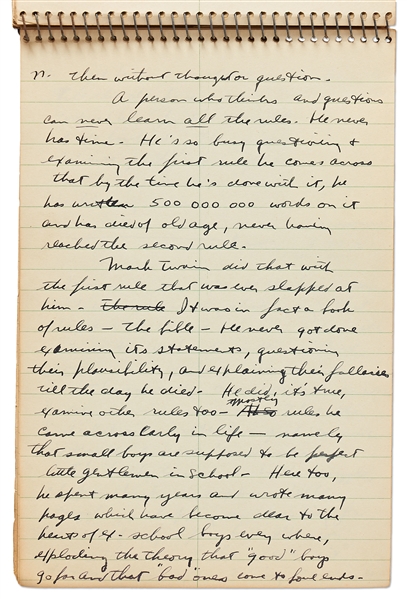 n. them without thought or question.
A person who thinks and questions
can never learn all the rules. He never
has time. He's so busy questioning &
examining the first rule he comes across
that by the time he's done with it, he
has written 500 000 000 words on it
and has died of old age, never having
reached the second rule.
Mark Twain did that with
the first rule that was ever slapped at
him. The rule It was in fact a book
of rules – the bible – He never got done
examining its statements, questioning
their plausibility, and explaining their fallacies
till the day he died. He did, it's true,
examine other rules too – Also mostly rules he
came across early in life – namely
that small boys are supposed to be perfect
little gentlemen in school – Here too,
he spent many years and wrote many
pages which have become dear to the
hearts of ex-school boys every where,
exploding the theory that "good" boys
go far and that "bad" ones come to foul ends.